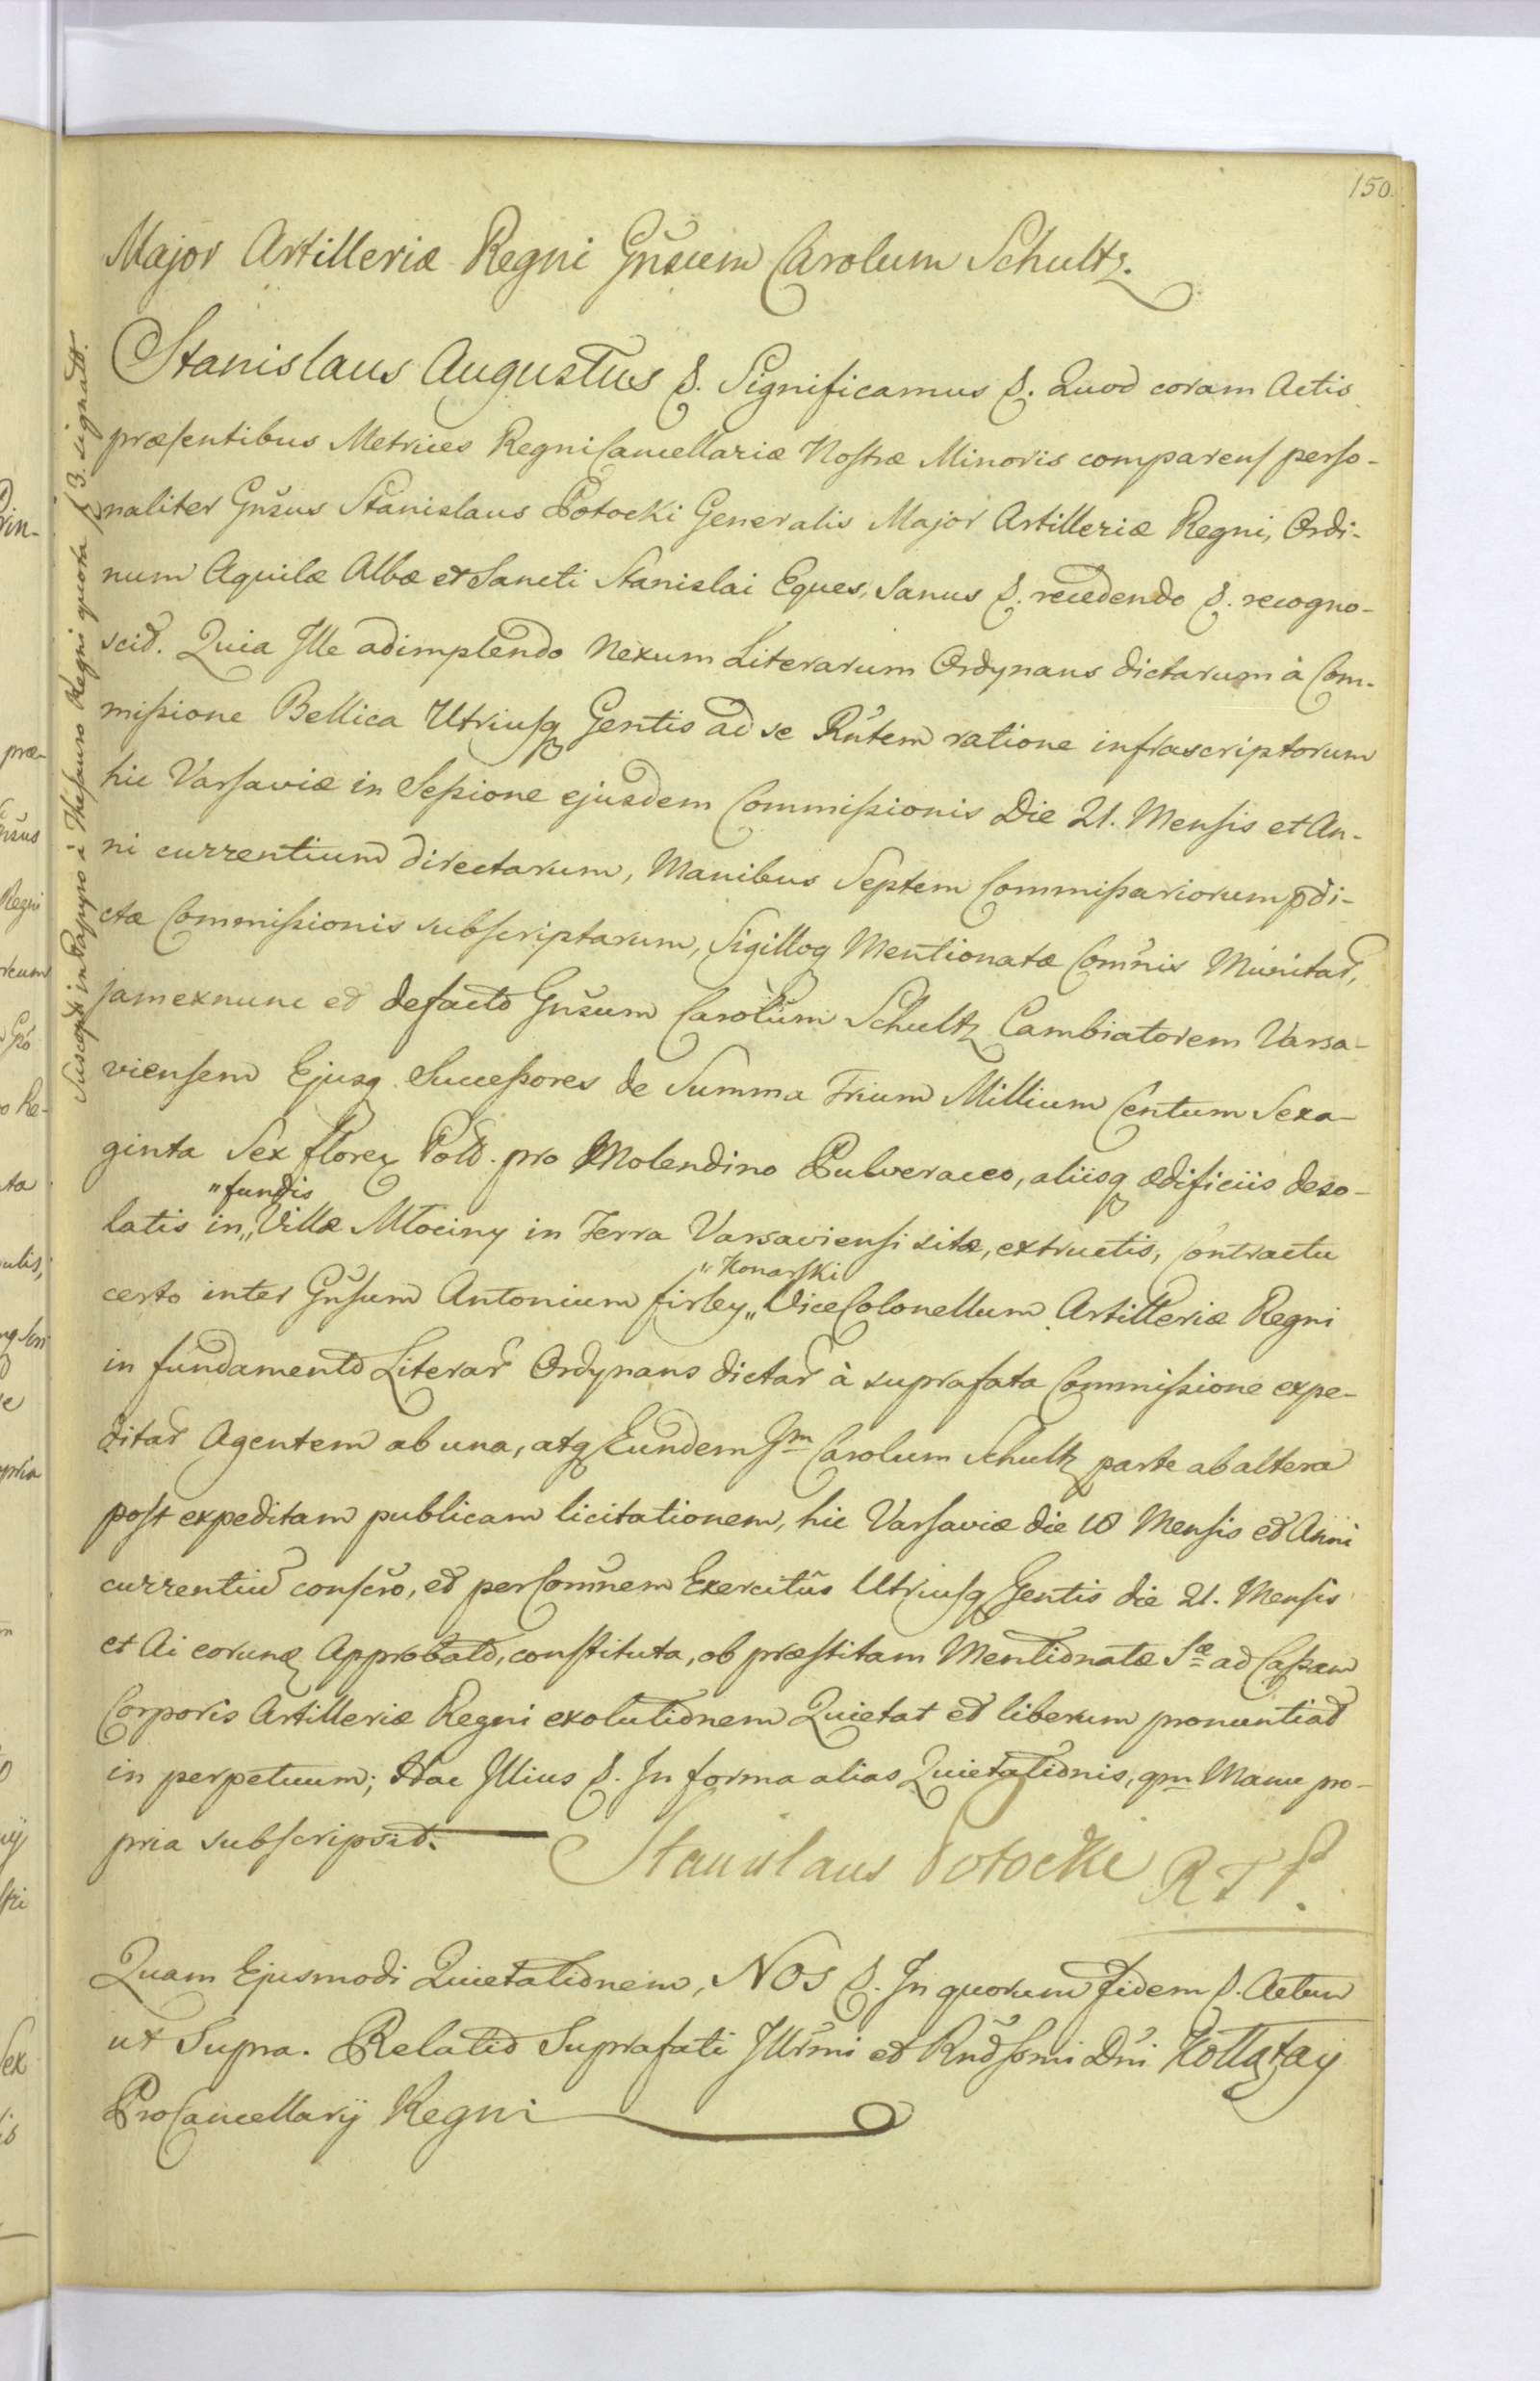 150.
Major Artilleriæ Regni Gnsum Carolum Schultz.
Stanislaus Augustus &. Significamus &. Quod coram Actis
præsentibus Metrices Regni Cancellariæ Nostræ Minoris comparens perso-
naliter Gnsus Stanislaus Potocki Generalis Major Artilleriæ Regni, Ordi-
num Aquilæ Albæ et Sancti Stanislai Eques, Sanus &. recedendo &. recogno-
scit. Quia Ille adimplendo Nexum Literarum Ordynans dictarum à Com-
missione Bellica Utriusq Gentis ad se Rntem ratione infrascriptorum
hic Varsaviæ in Sessione ejusdem Commissionis Die 21. Mensis et An-
ni currentium directarum, Manibus Septem Commissariorum pdi-
ctæ Commissionis subscriptarum, Sigilloq Mentionatæ Comnis
jam exnunc et defacto Gnsum Carolum Schultz Cambiatorem Varsa-
viensem Ejusq Successores de Summa Trium Millium Centum Sexa-
ginta Sex floren Pold. pro Molendino Pulveraceo, aliisq ædificiis deso-
"fundis
latis in,, Villæ Młociny in Terra Varsaviensi sitæ, extructis, Contractu
"Konarski
certo inter Gnsum Antonium firley,, Vice Colonellum Artilleriæ Regni
in fundamento Literar Ordynans dictar à suprafata Commissione expe-
ditar Agentem ab una, atq Eundem Gm Carolum Schultz parte ab altera
post expeditam publicam licitationem, hic Varsaviæ die 18 Mensis et Anni
currentiu conscro, et per Comnem Exercitûs Utriusq Gentis die 21. Mensis
et Ai eorund Approbato, constituta, ob præstitam Mentionatæ Sæ ad Cassam
Corporis Artilleriæ Regni exolutionem Quietat et liberum pronuntiat
in perpetuum; Hac Illius &. In forma alias Quietationis, qm Manu pro-
pria subscripsit.
Stanislaus Potocki
Quam Ejusmodi Quietationem, NOS &. In quorum fidem &. Actum
ut Supra. Relatio Suprafati Illrmi et Rndssmi Dni Kołłątay
ProCancellarij Regni
Suscepta in Papyro à Thesauro Regni quota f 3. signata.